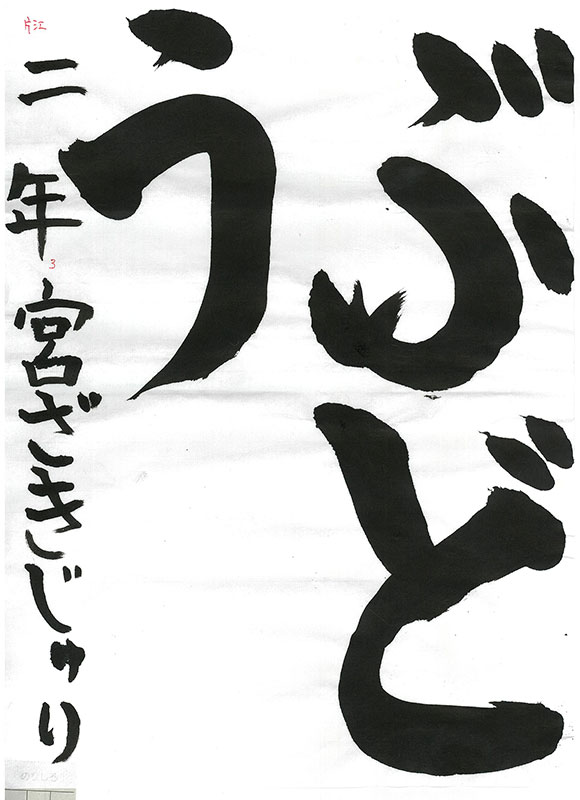 ぶど
う
二年宮ざきじゅり
片江
3
のりしろ